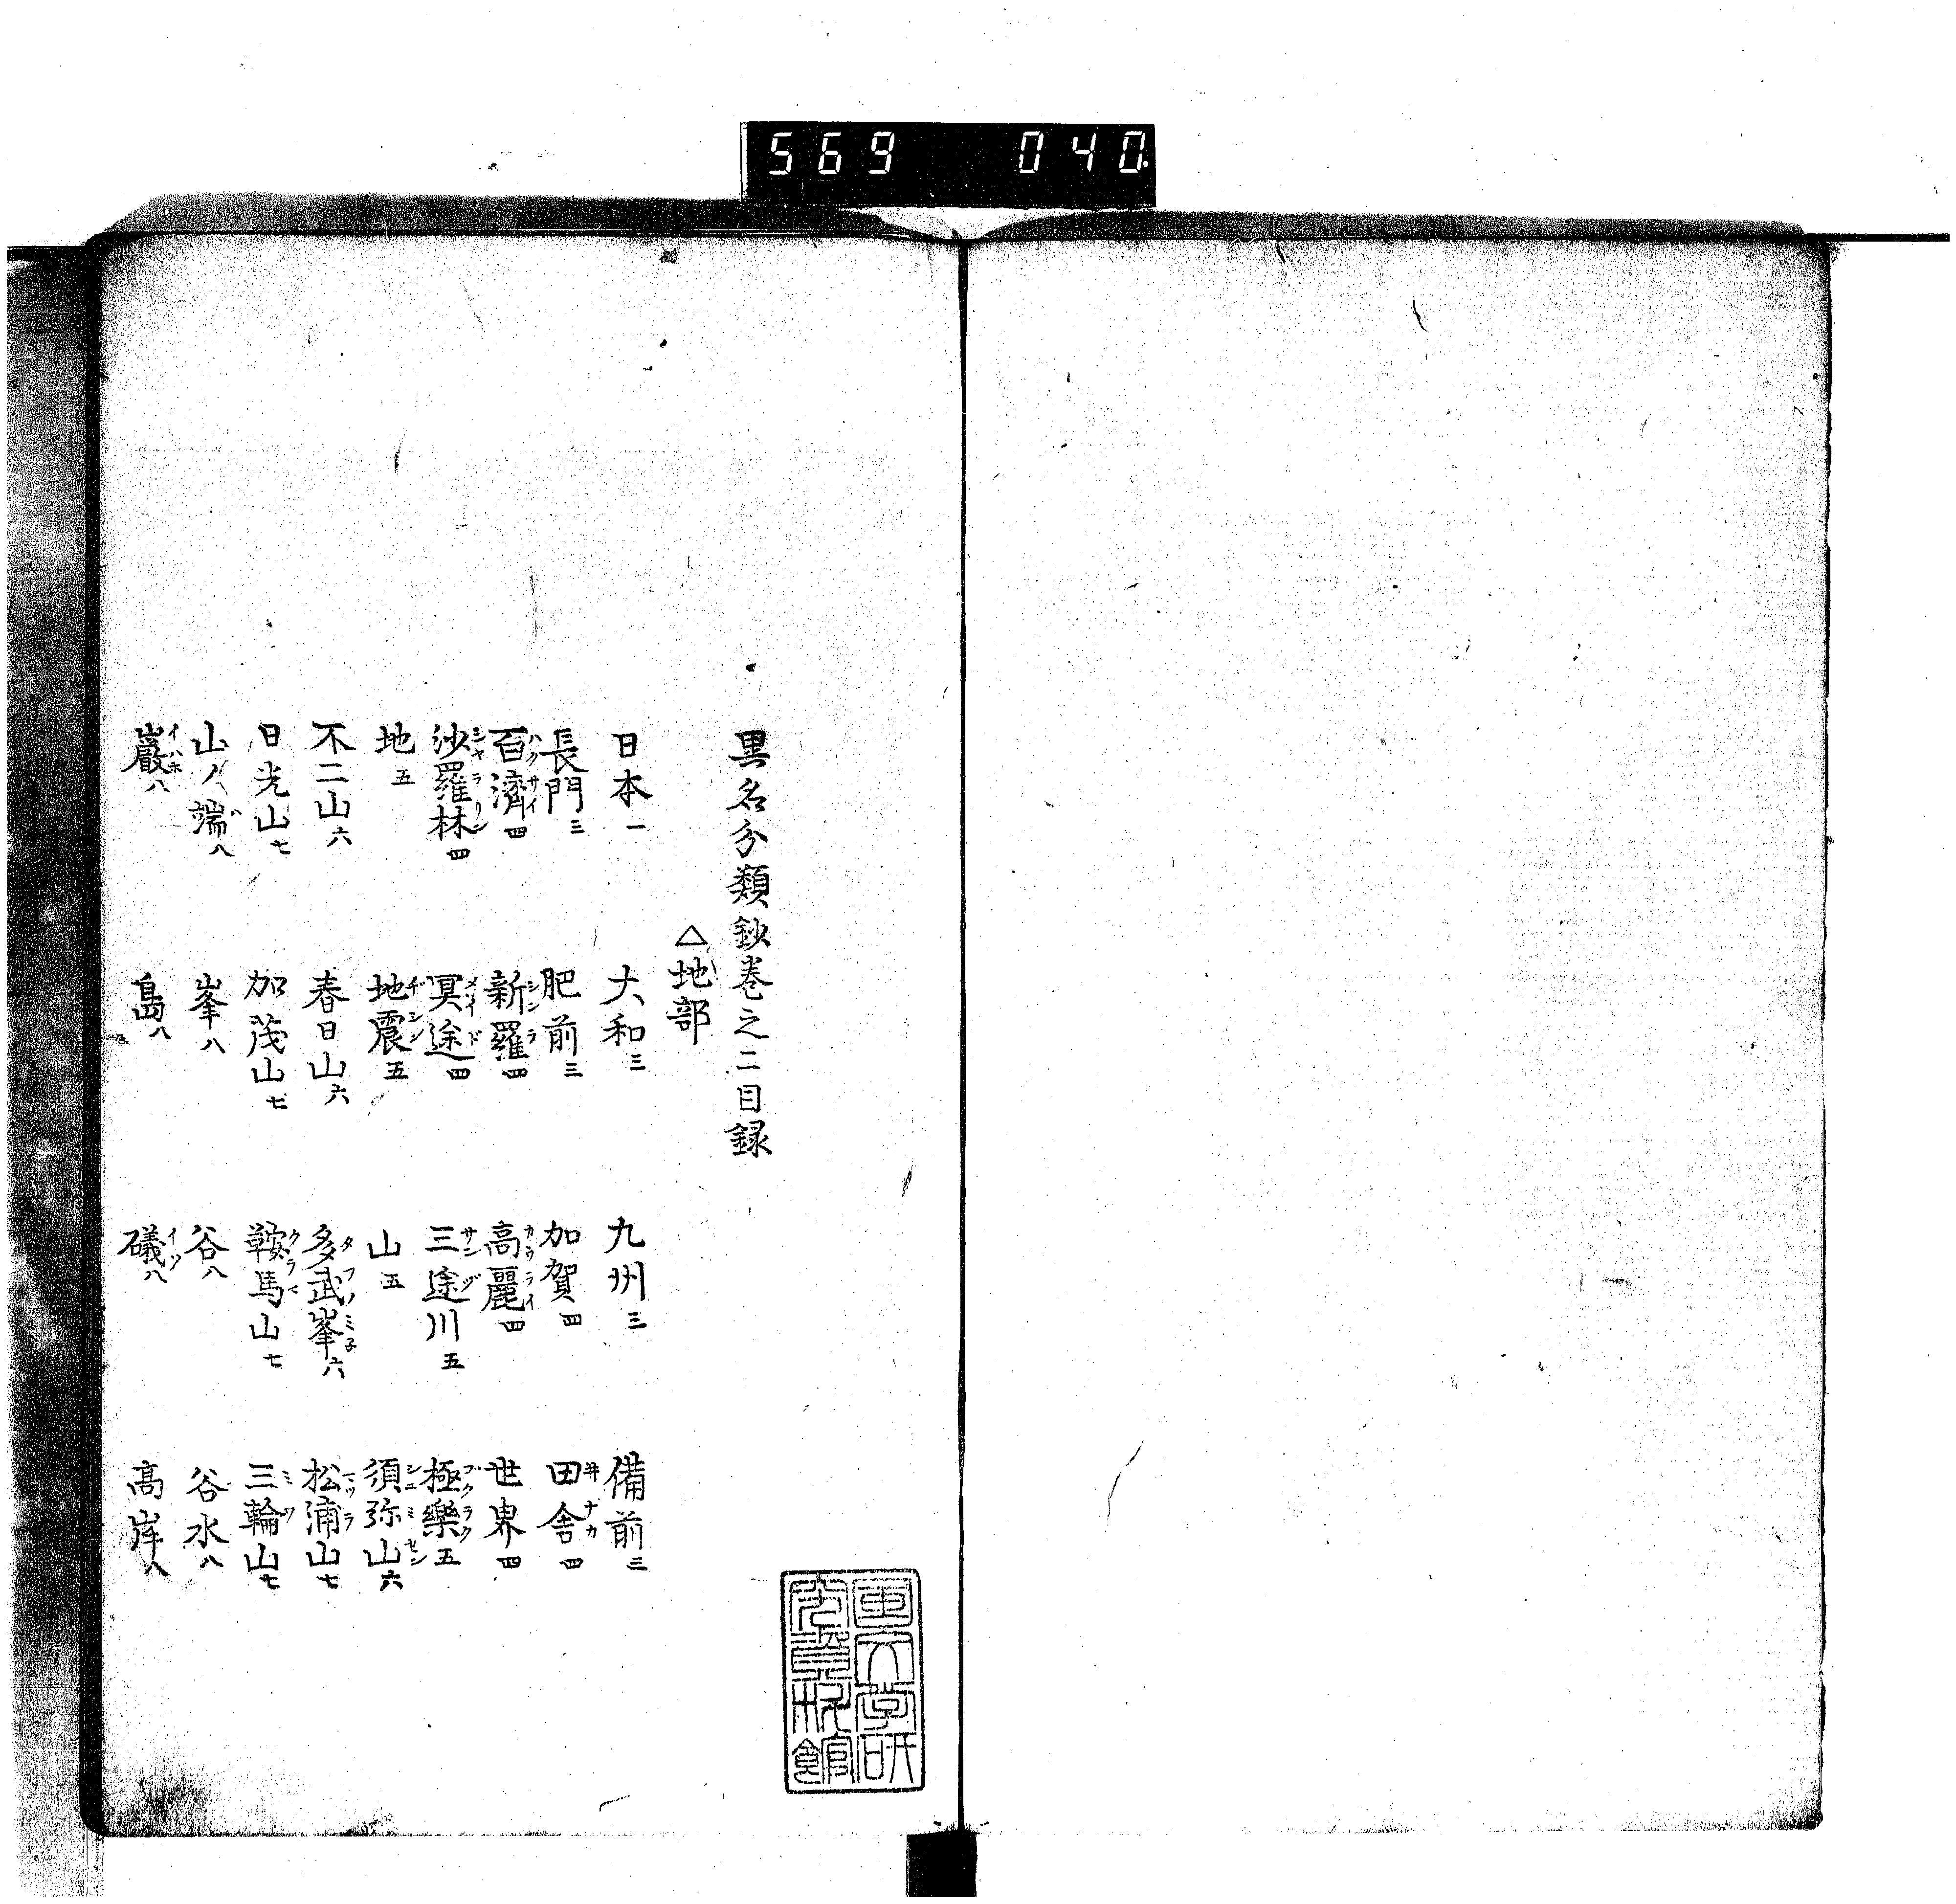 569 040
異名分類鈔巻之二目録
△地部
日本一 大和三 九州三 備前三
長門三 肥前三 加賀四 田舎四
百濟四 新羅四 高麗四 世界四
沙羅林四 冥途四 三途川五 極樂五
地五 地震五 山五 須弥山六
不二山六 春日山六 多武峯六 松浦山七
日光山七 加茂山七 鞍馬山七 三輪山七
山ノ端八 峯八 谷八 谷水八
巖八 島八 礒八 高岸八